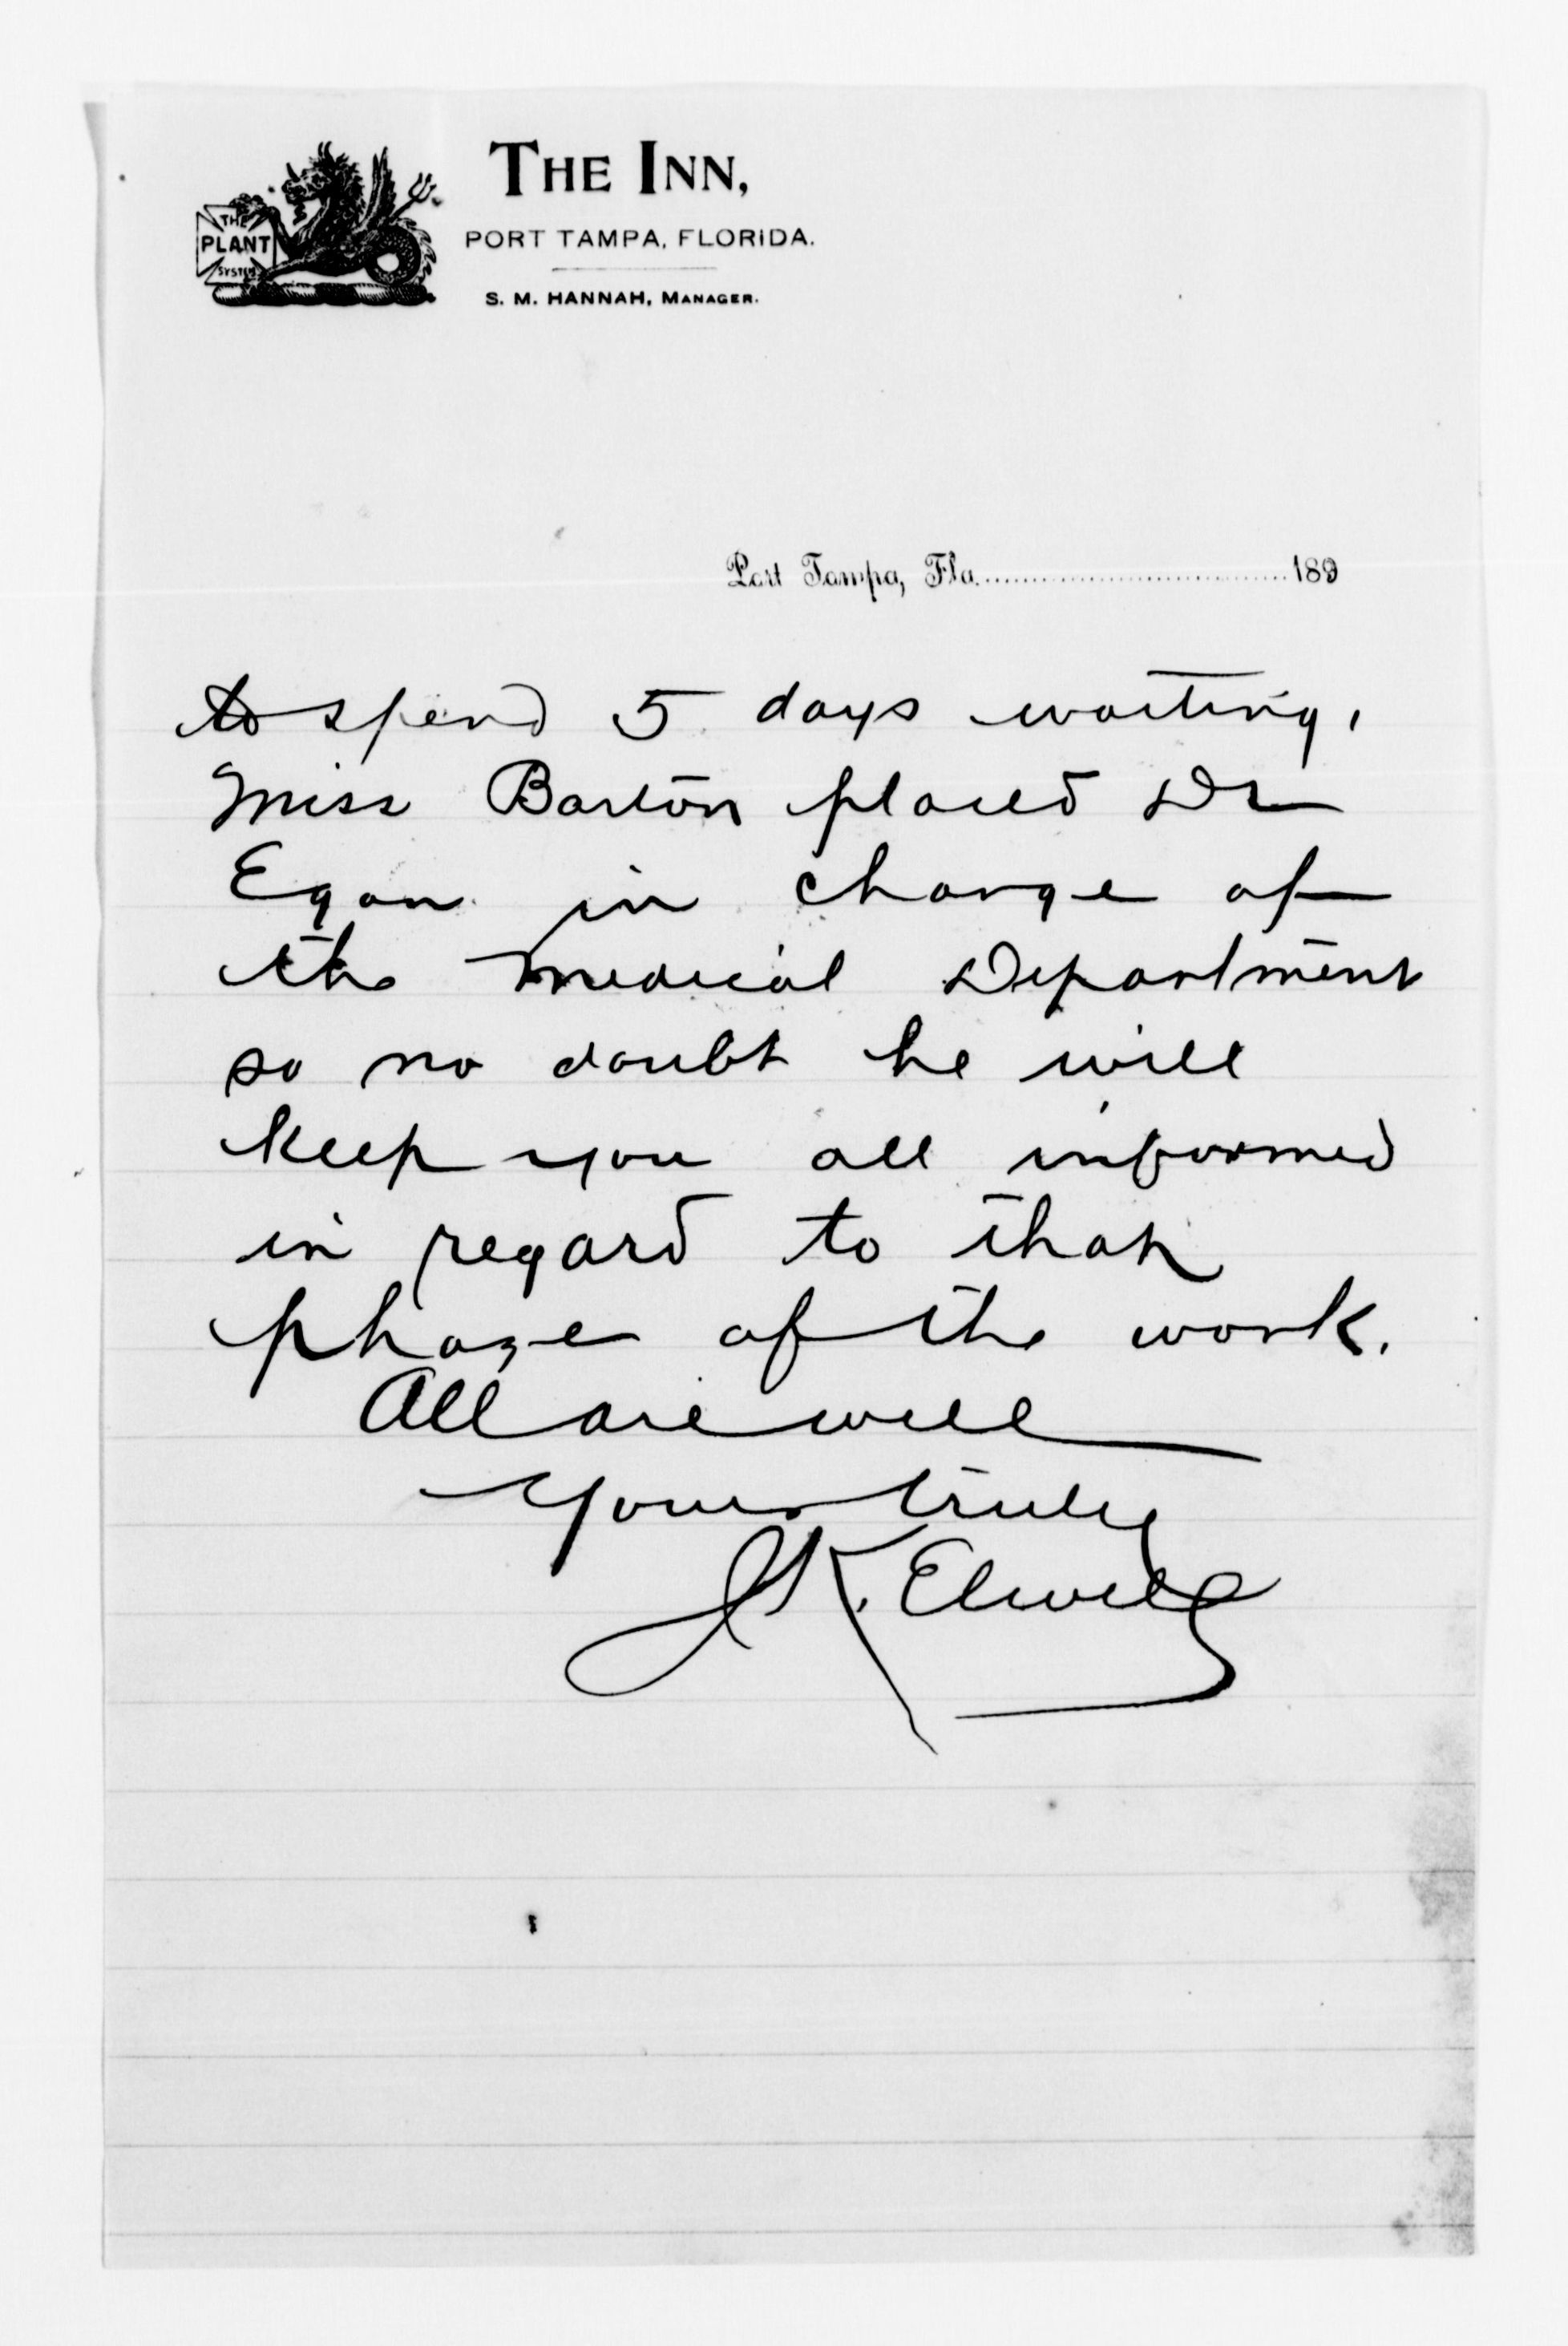 THE INN,
THE
PLANT
SYSTEM
PORT TAMPA, FLORIDA.
S. M. HANNAH, MANAGER.
Port Tampa, Fla. 189
to spend 5 days waiting,
Miss Barton placed Dr
Egan in charge of
the Medical Department
so no doubt he will
keep you all informed
in regard to that
phase of the work.
All are well
Yours truly
J K. Elwell